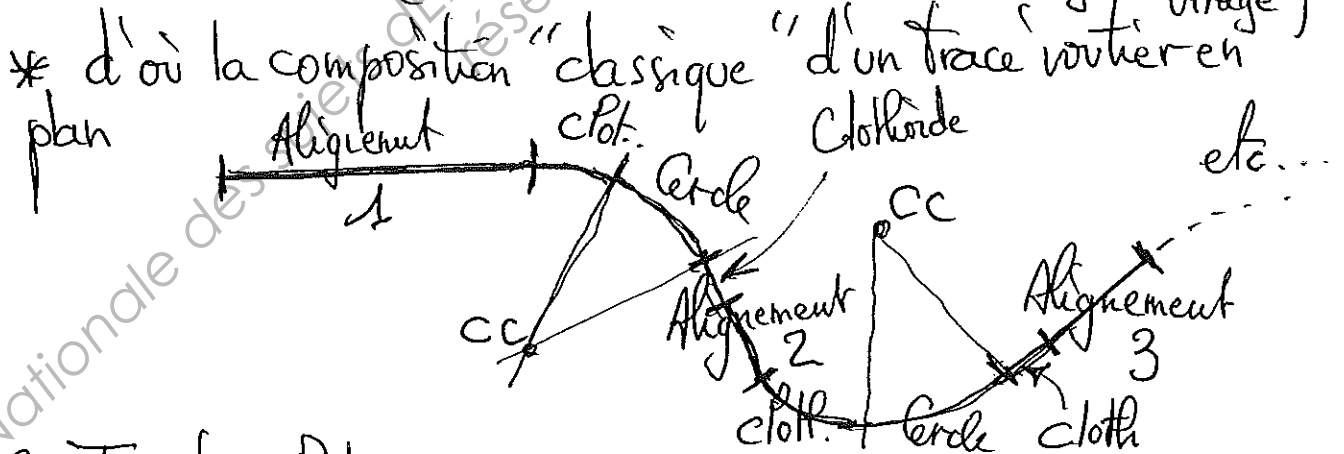 virage)
* d'où la composition "classique" d'un tracé routier en
plan
Alignemt
1
clot.
Cercle
Clothoïde
etc...
CC
CC
Alignement
2
Alignement
3
cloth.
Cercle
cloth
nationale des sujets d
rése